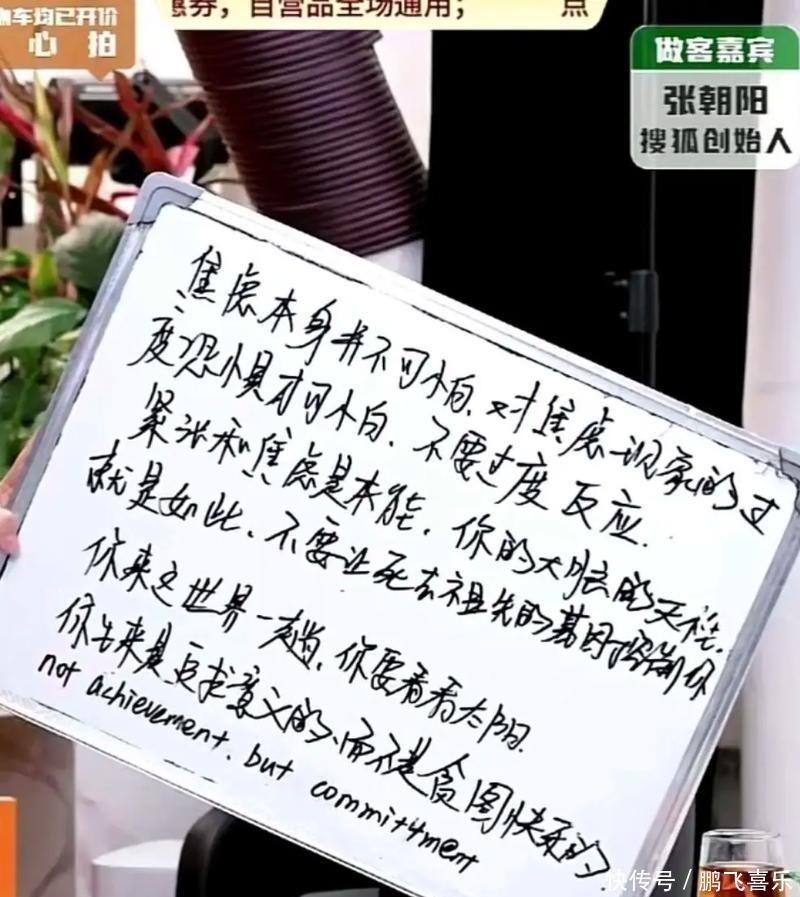 咖车均已开价
心拍
惠券，自营品全场通用；
点
做客嘉宾
张朝阳
搜狐创始人
焦虑本身并不可怕、对焦虑现象的过
度恐惧才可怕、不要过度反应.
紧张和焦虑是本能，你的大脑的天性.
就是如此、不要让死去祖先的基因控制你
你来这世界一趟，你要看看太阳.
你生来是要求意义的、而不是贪图快乐的
not achievement. but committment
快传号／鹏飞喜乐